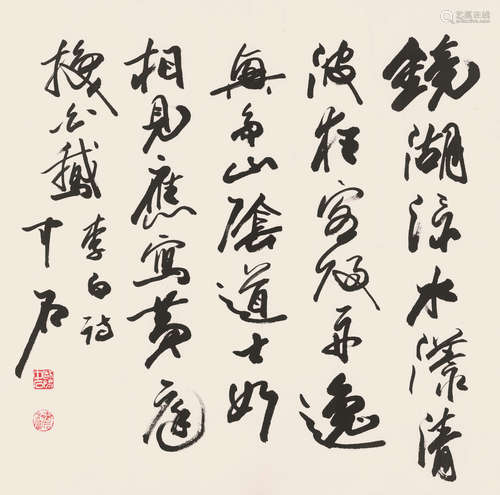 鏡湖流水漾清
波狂客歸舟逸
興多山陰道士如
相見應寫黃庭
換白鵝 李白詩
中石